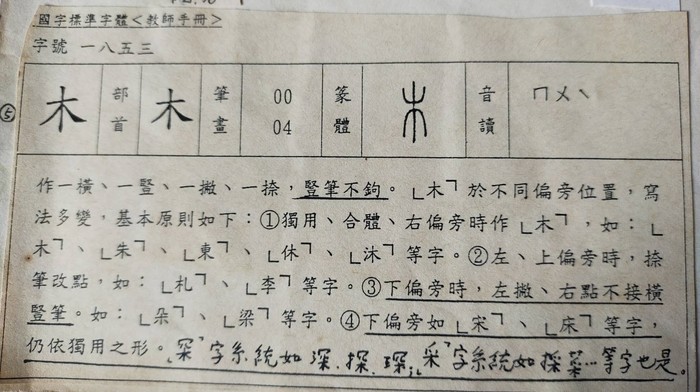 國字標準字體<教師手冊>
字號 一八五三
⑤ 木 部首 木 筆畫 00 04 篆體 音讀 ㄇㄨˋ
作一橫、一豎、一撇、一捺,豎筆不鉤。「木」於不同偏旁位置,寫
法多變,基本原則如下:①獨用、合體、右偏旁時作「木」,如:「
木」、「朱」、「東」、「休」、「沐」等字。②左、上偏旁時,捺
筆改點,如:「札」、「李」等字。③下偏旁時,左撇、右點不接橫
豎筆。如:「朵」、「梁」等字。④下偏旁如「宋」、「床」等字,
仍依獨用之形。「罙」字系統如深、探、琛;「采」字系統如採菜…等字也是。